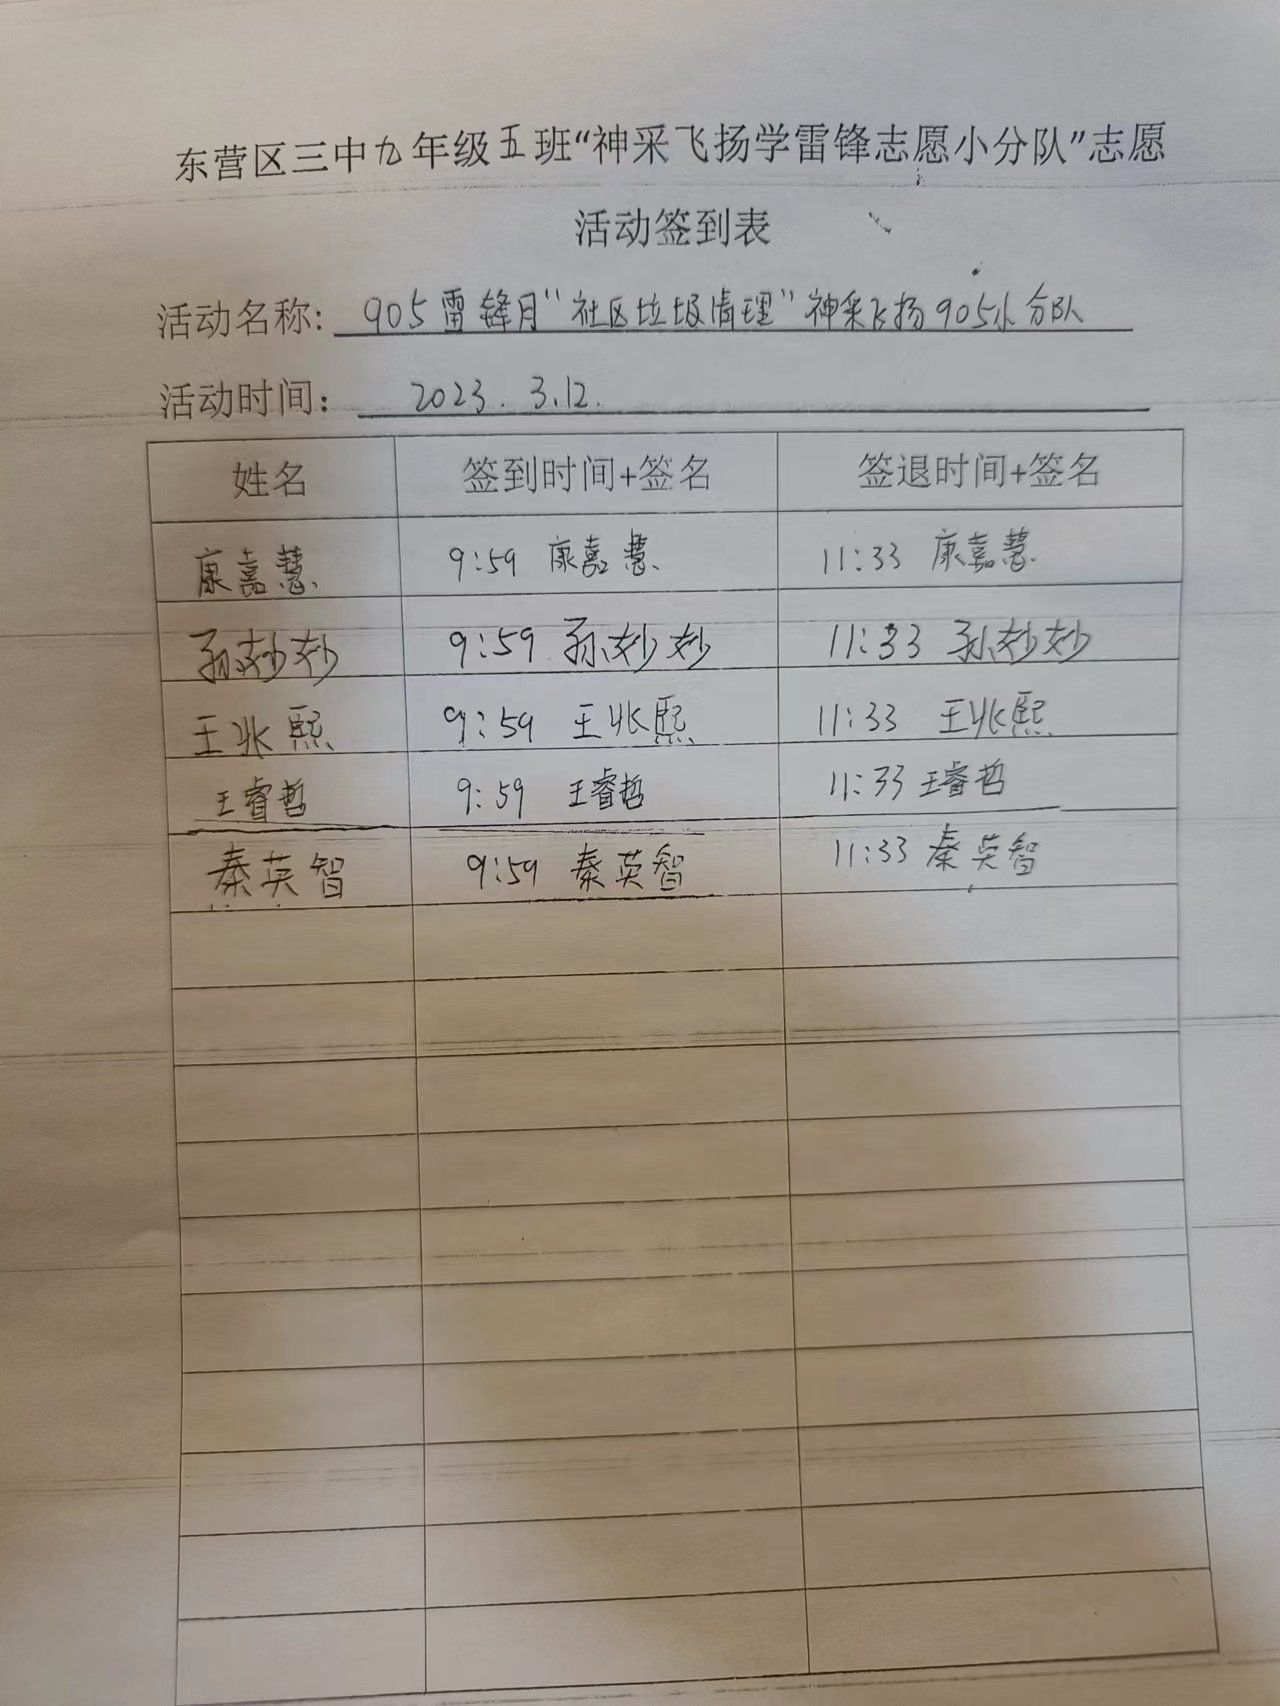 东营区三中九年级五班“神采飞扬学雷锋志愿小分队”志愿
活动签到表
活动名称: 905雷锋月“社区垃圾清理”神采飞扬905小分队
活动时间: 2023.3.12.
姓名 签到时间+签名 签退时间+签名
康嘉慧 9:59 康嘉慧 11:33 康嘉慧
孙妙妙 9:59 孙妙妙 11:33 孙妙妙
王兆熙 9:59 王兆熙 11:33 王兆熙
王睿哲 9:59 王睿哲 11:33 王睿哲
秦英智 9:59 秦英智 11:33 秦英智